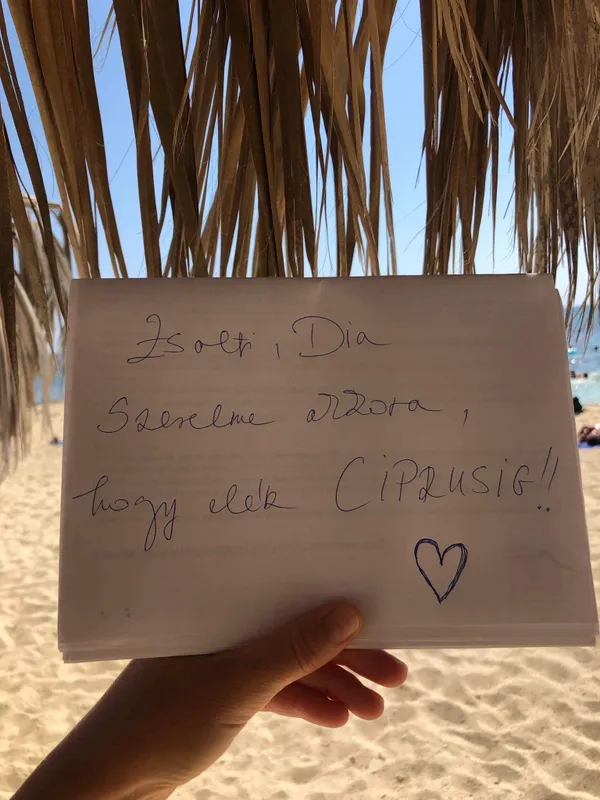 Zsolti, Dia
Szerelme akkora,
hogy elér CIPRUSIG!!